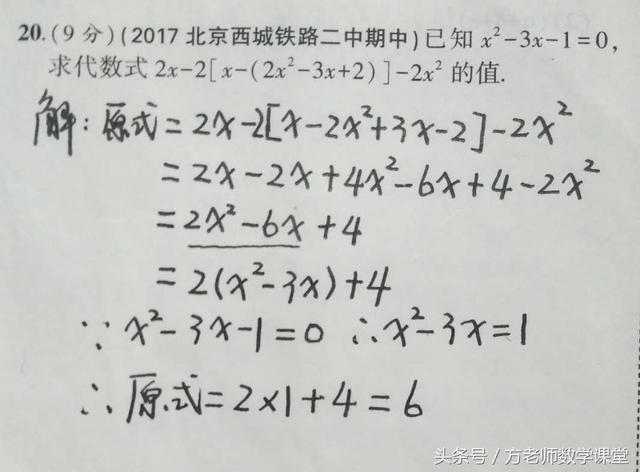 20.(9分)(2017 北京西城铁路二中期中)已知 x²-3x-1=0,
求代数式 2x-2[x-(2x²-3x+2)]-2x² 的值.
解:原式=2x-2[x-2x²+3x-2]-2x²
=2x-2x+4x²-6x+4-2x²
=2x²-6x+4
=2(x²-3x)+4
∵x²-3x-1=0 ∴x²-3x=1
∴原式=2×1+4=6
头条号/方老师数学课堂